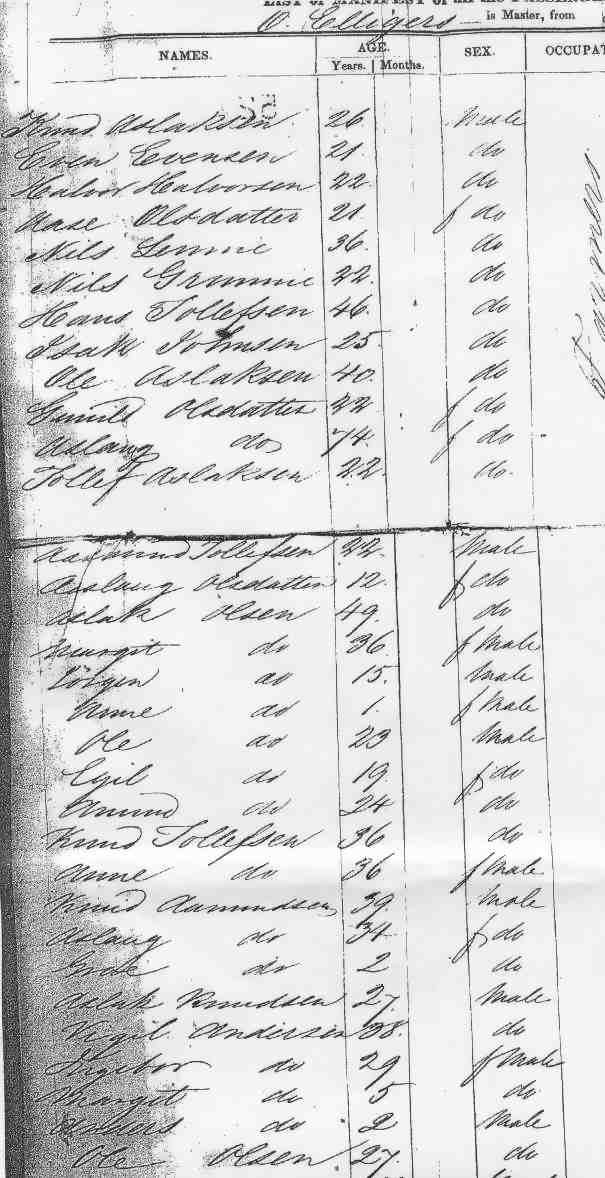 O. Elligers is Master, from
NAMES. AGE. SEX. OCCUPAT
Years. Months.
Knud Aslaksen 26 Male
Even Evensen 21 do
Halvor Halvorsen 22 do
Aase Olsdatter 21 f do
Nils 36. do
Nils 22. do
Hans Tollefsen 46. do
Isak Johnsen 25 do
Ole Aslaksen 40. do
Gunild Olsdatter 22 f do
Aslaug do 74. f do
Tollef Aslaksen 22. do.
Farmers
Aasmund Tollefsen 22. Male
Aaslaug Olsdatter 12. f do
Aslak Olsen 49. do
Margit do 36. f Male
do 15. Male
Anne do 1. f Male
Ole do 23 Male
do 19 f do
Amund do 24 do
Knud Tollefsen 36 do
Anne do 36 f Male
Knud Aamundsen 39. Male
Aslaug do 34 f do
do 2 do
Aslak Knudsen 27. Male
Andersen 38. do
Ingebor do 29 f Male
Margit do 5 do
do 2 Male
Ole Olsen 27. do